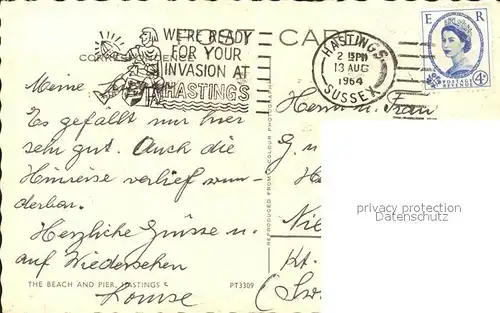 CORRESPONDENCE
WE'RE READY
FOR YOUR
INVASION AT
HASTINGS
HASTINGS
2 15PM
13 AUG
1964
SUSSEX
E R
POSTAGE
4D
Meine
Es gefällt mir hier
sehr gut. Auch die
Hinreise verlief wun-
derbar.
Herzliche Grüsse u.
auf Wiedersehen
Louise
THE BEACH AND PIER, HASTINGS
PT3309
REPRODUCED FROM A COLOUR PHOTOGRAPH
Herrn u. Frau
G. u
Nie
Kt.
(Sw
privacy protection
Datenschutz